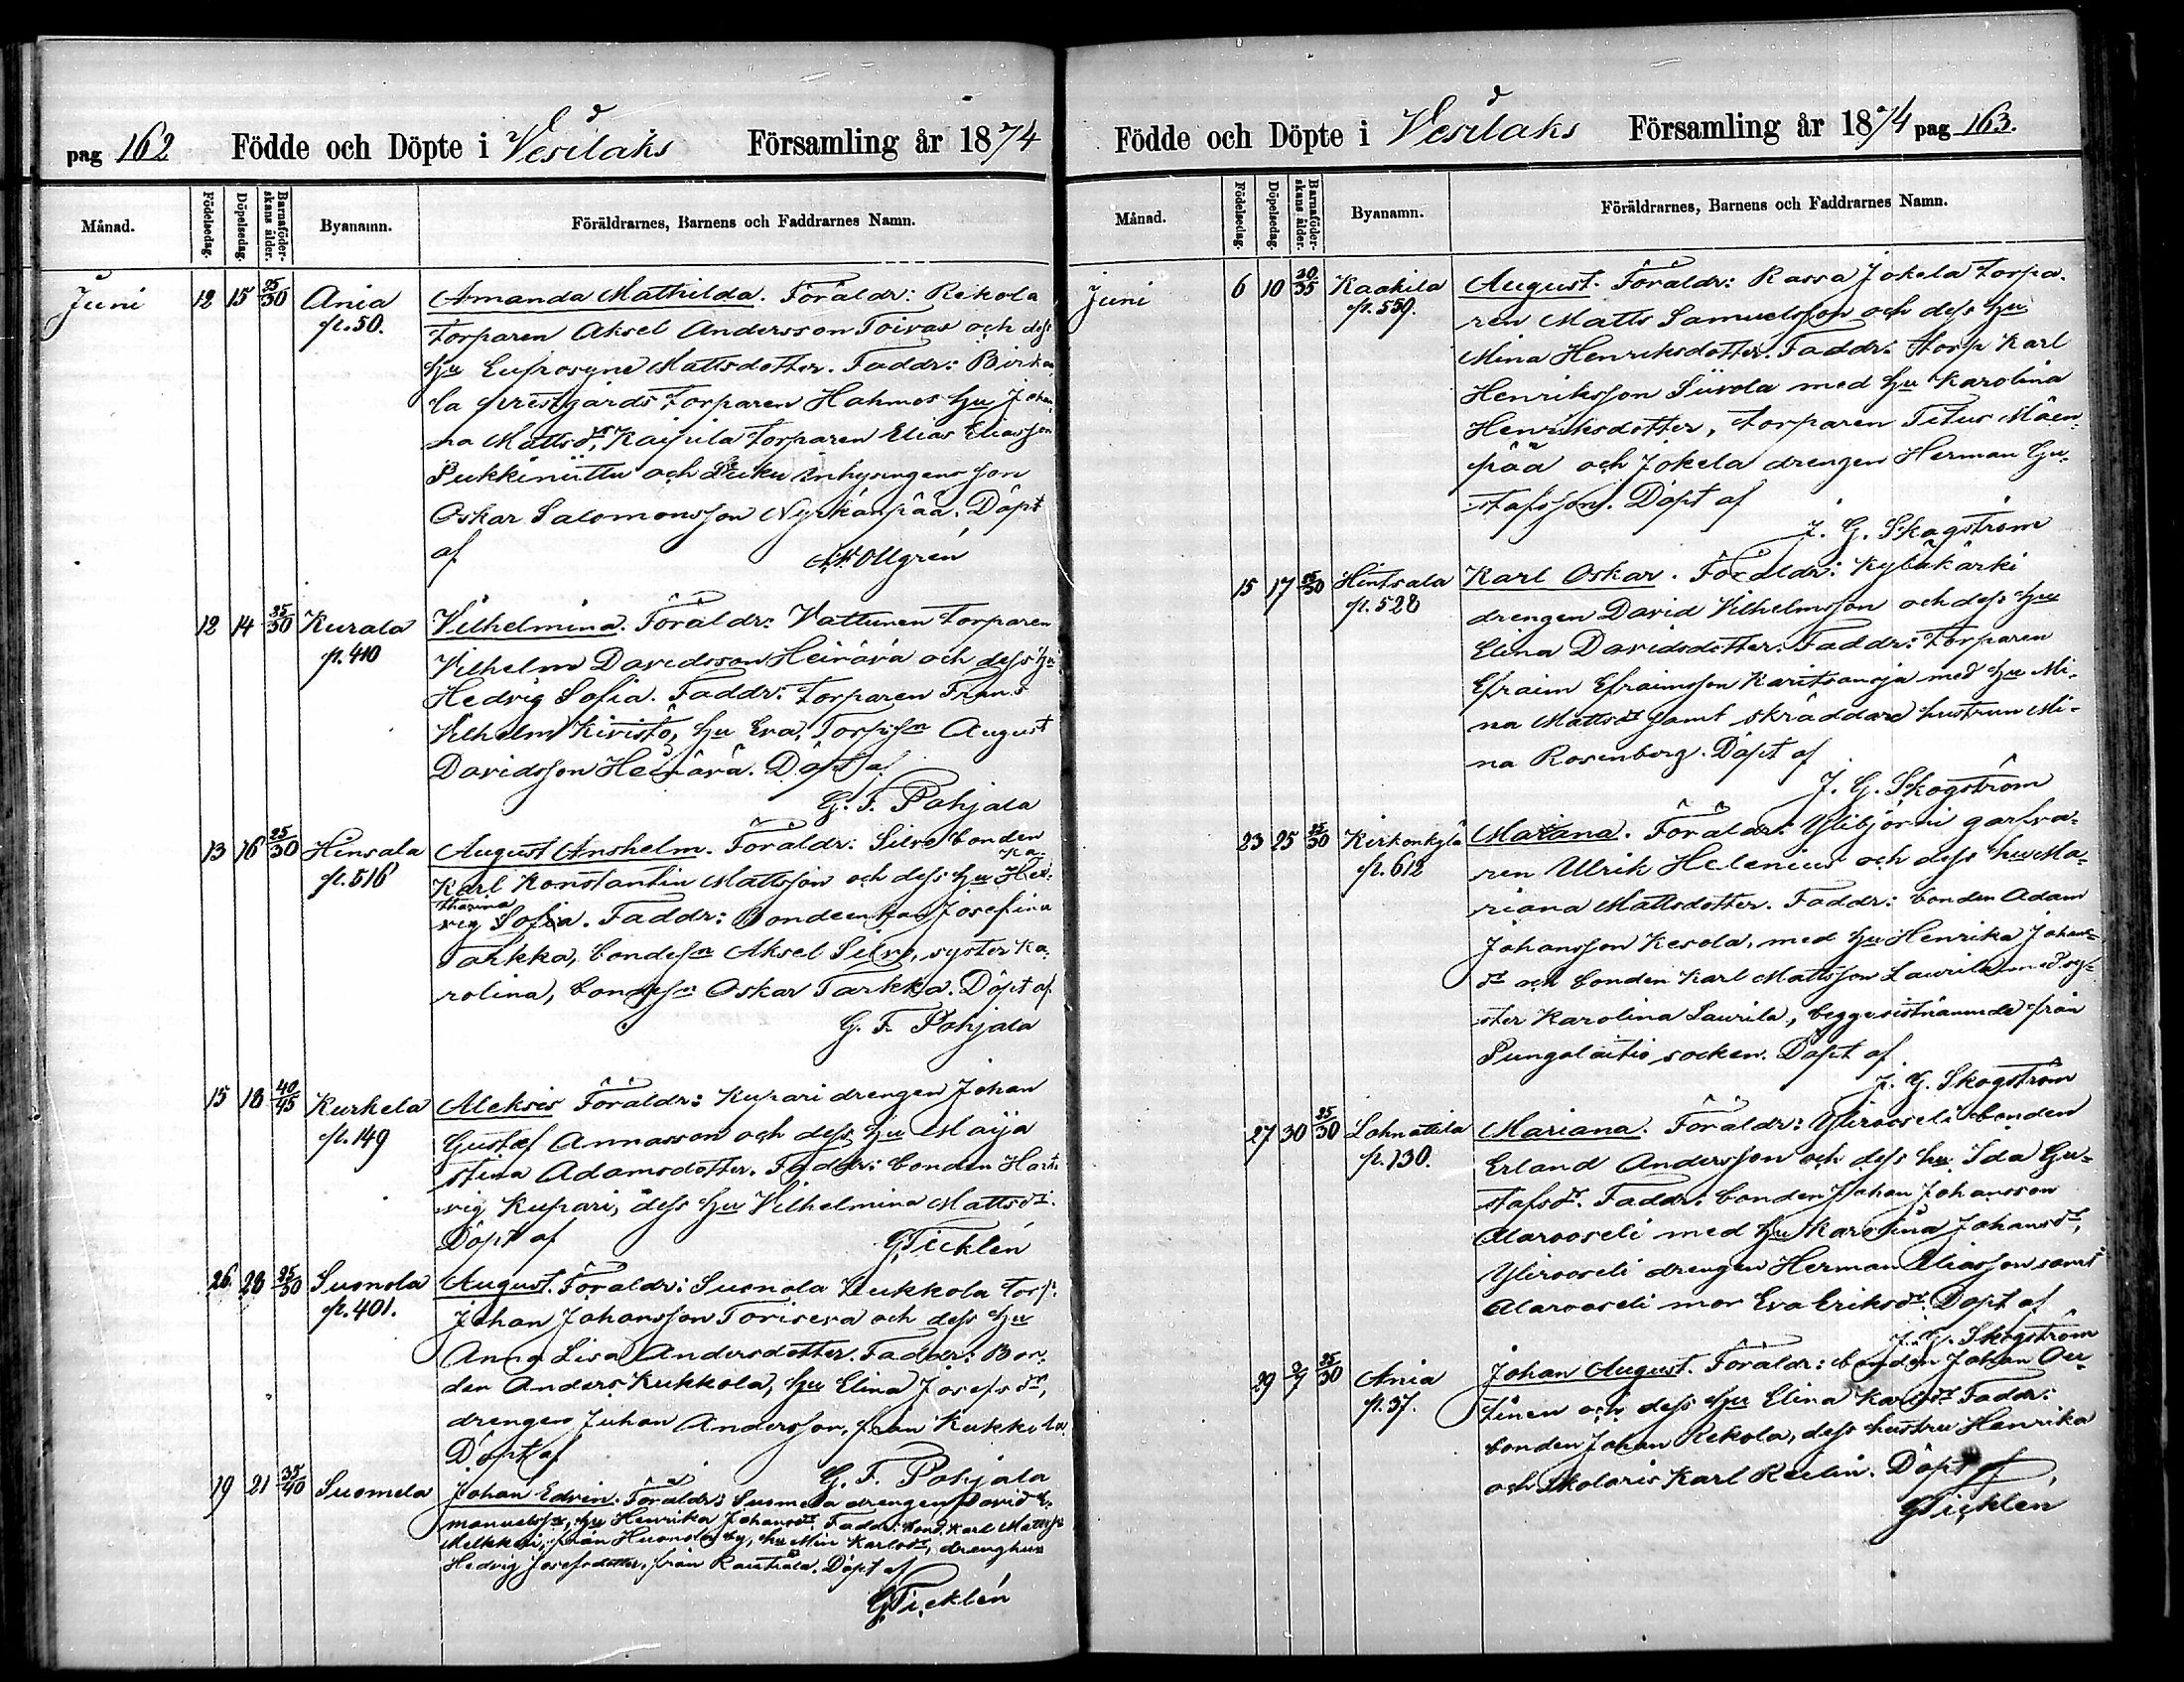 pag 162 Födde och Döpte i Vesilaks Församling år 1874
Månad. Födelsedag. Döpelsedag. Barnaföderskans ålder. Byanamn. Föräldrarnes, Barnens och Faddrarnes Namn.
Juni 12 15 25/30 Ania Amanda Mathilda. Föräldr: Rekola
p. 50. Torparen Aksel Andersson Toivas och dess
hu Eufrosyne Mattsdotter. Faddr: Birka
la prestgårds Torparen Hahmos hu Johan
na Mattsdr, Kaipila Torparen Elias Eliasson
Pukkiniittu och inhysingens son
Oskar Salomonsson Nyrkänpää. Döpt
af Ollgrén
12 14 25/30 Kurala Vilhelmina. Föräldr: Vattunen Torparen
p. 410 Vilhelm Davidsson Heinävä och dess hu
Hedvig Sofia. Faddr: Torparen Frans
Vilhelm Kivistö, hu Eva, Torpsn August
Davidsson Heinävä. Döpt af
G. F. Pohjala
13 16 25/30 Hinsala August Anshelm. Föräldr: Silve bonden
p. 516 Karl Konstantin Mattsson och dess hu Hed
Ka
tharina
vig Sofia. Faddr: Bondeenkan Josefina
Tarkka, bondesn Aksel Silve, syster Ka
rolina, bondesn Oskar Tarkka. Döpt af
G. F. Pohjala
15 18 40/45 Kurkela Aleksis Föräldr: Kupari drengen Johan
p. 149 Gustaf Annasson och dess hu Maija
Stina Adamsdotter. Faddr: bonden Hart
vig Kupari, dess hu Vilhelmina Mattsdr.
Döpt af G Ticklén
26 28 25/30 Suonola August. Föräldr: Suonola Kukkola torp.
p. 401. Johan Johansson Toriseva och dess hu
Anna Lisa Andersdotter. Faddr: Bon
den Anders Kukkola, hu Elina Josefsdr,
drengen Juhan Andersson, från Kukkola
Döpt af
G. F. Pohjala
19 21 35/40 Suomela Johan Edvin. Föräldr: Suomela drengen David E-
manuelssn, hu Henrika Johansdr. Faddr: bond. Karl Mattss
från by, hu Mina Karlsdr, drenghu
Hedvig Josefsdotter, från Rautiala. Döpt af
G Ticklén
Födde och Döpte i Vesilaks Församling år 1874 pag 163.
Månad. Födelsedag. Döpelsedag. Barnaföderskans ålder. Byanamn. Föräldrarnes, Barnens och Faddrarnes Namn.
Juni 6 10 30/35 Kaakila August. Föräldr: Rassa Jokela Torpa-
p. 559. ren Matts Samuelsson och dess hu
Mina Henriksdotter. Faddr: torp Karl
Henriksson Siivola med hu Karolina
Henriksdotter, torparen Titus Mäen-
pää och Jokela drengen Herman Gu-
stafsson. Döpt af
J. G. Skogström
15 17 25/30 Hintsala Karl Oskar. Föräldr: Kyläkärki
p. 528 drengen David Vilhelmsson och dess hu
Elina Davidsdotter. Faddr: Torparen
Efraim Efraimsson Karitsansja med hu Mi-
na Mattsdr samt skräddare hustrun Mi-
na Rosenberg. Döpt af
J. G. Skogström
23 25 25/30 Kirkonkylä Mariana. Föräldr: Ylibjörni garfva-
p. 612 ren Ullrik Helenius och dess hu Ma-
riana Mattsdotter. Faddr: bonden Adam
Johansson Kesola, med hu Henrika Johans-
dr och bonden Karl Mattsson Laurila med sy-
ster Karolina Laurila, begge sistnämnde från
Pungalaitio socken. Döpt af
J. G. Skogström
27 30 25/30 Lahnatila Mariana. Föräldr: Ylirooseli bonden
p. 130. Erland Andersson och dess hu Ida Gu-
stafsdr. Faddr: bonden Johan Johansson
Alarooseli med hu Karolina Johansdr,
Ylirooseli drengen Herman Eliasson samt
Alarooseli mor Eva Eriksdr. Döpt af
J. G. Skogström
29 2/7 25/30 Ania Johan August. Föräldr: bonden Johan Ou-
p. 37. tinen och dess hu Elina Karlsdr. Faddr:
bonden Johan Rekola, dess hustru Henrika
och skolaris Karl Relin. Döpt af
G Ticklén